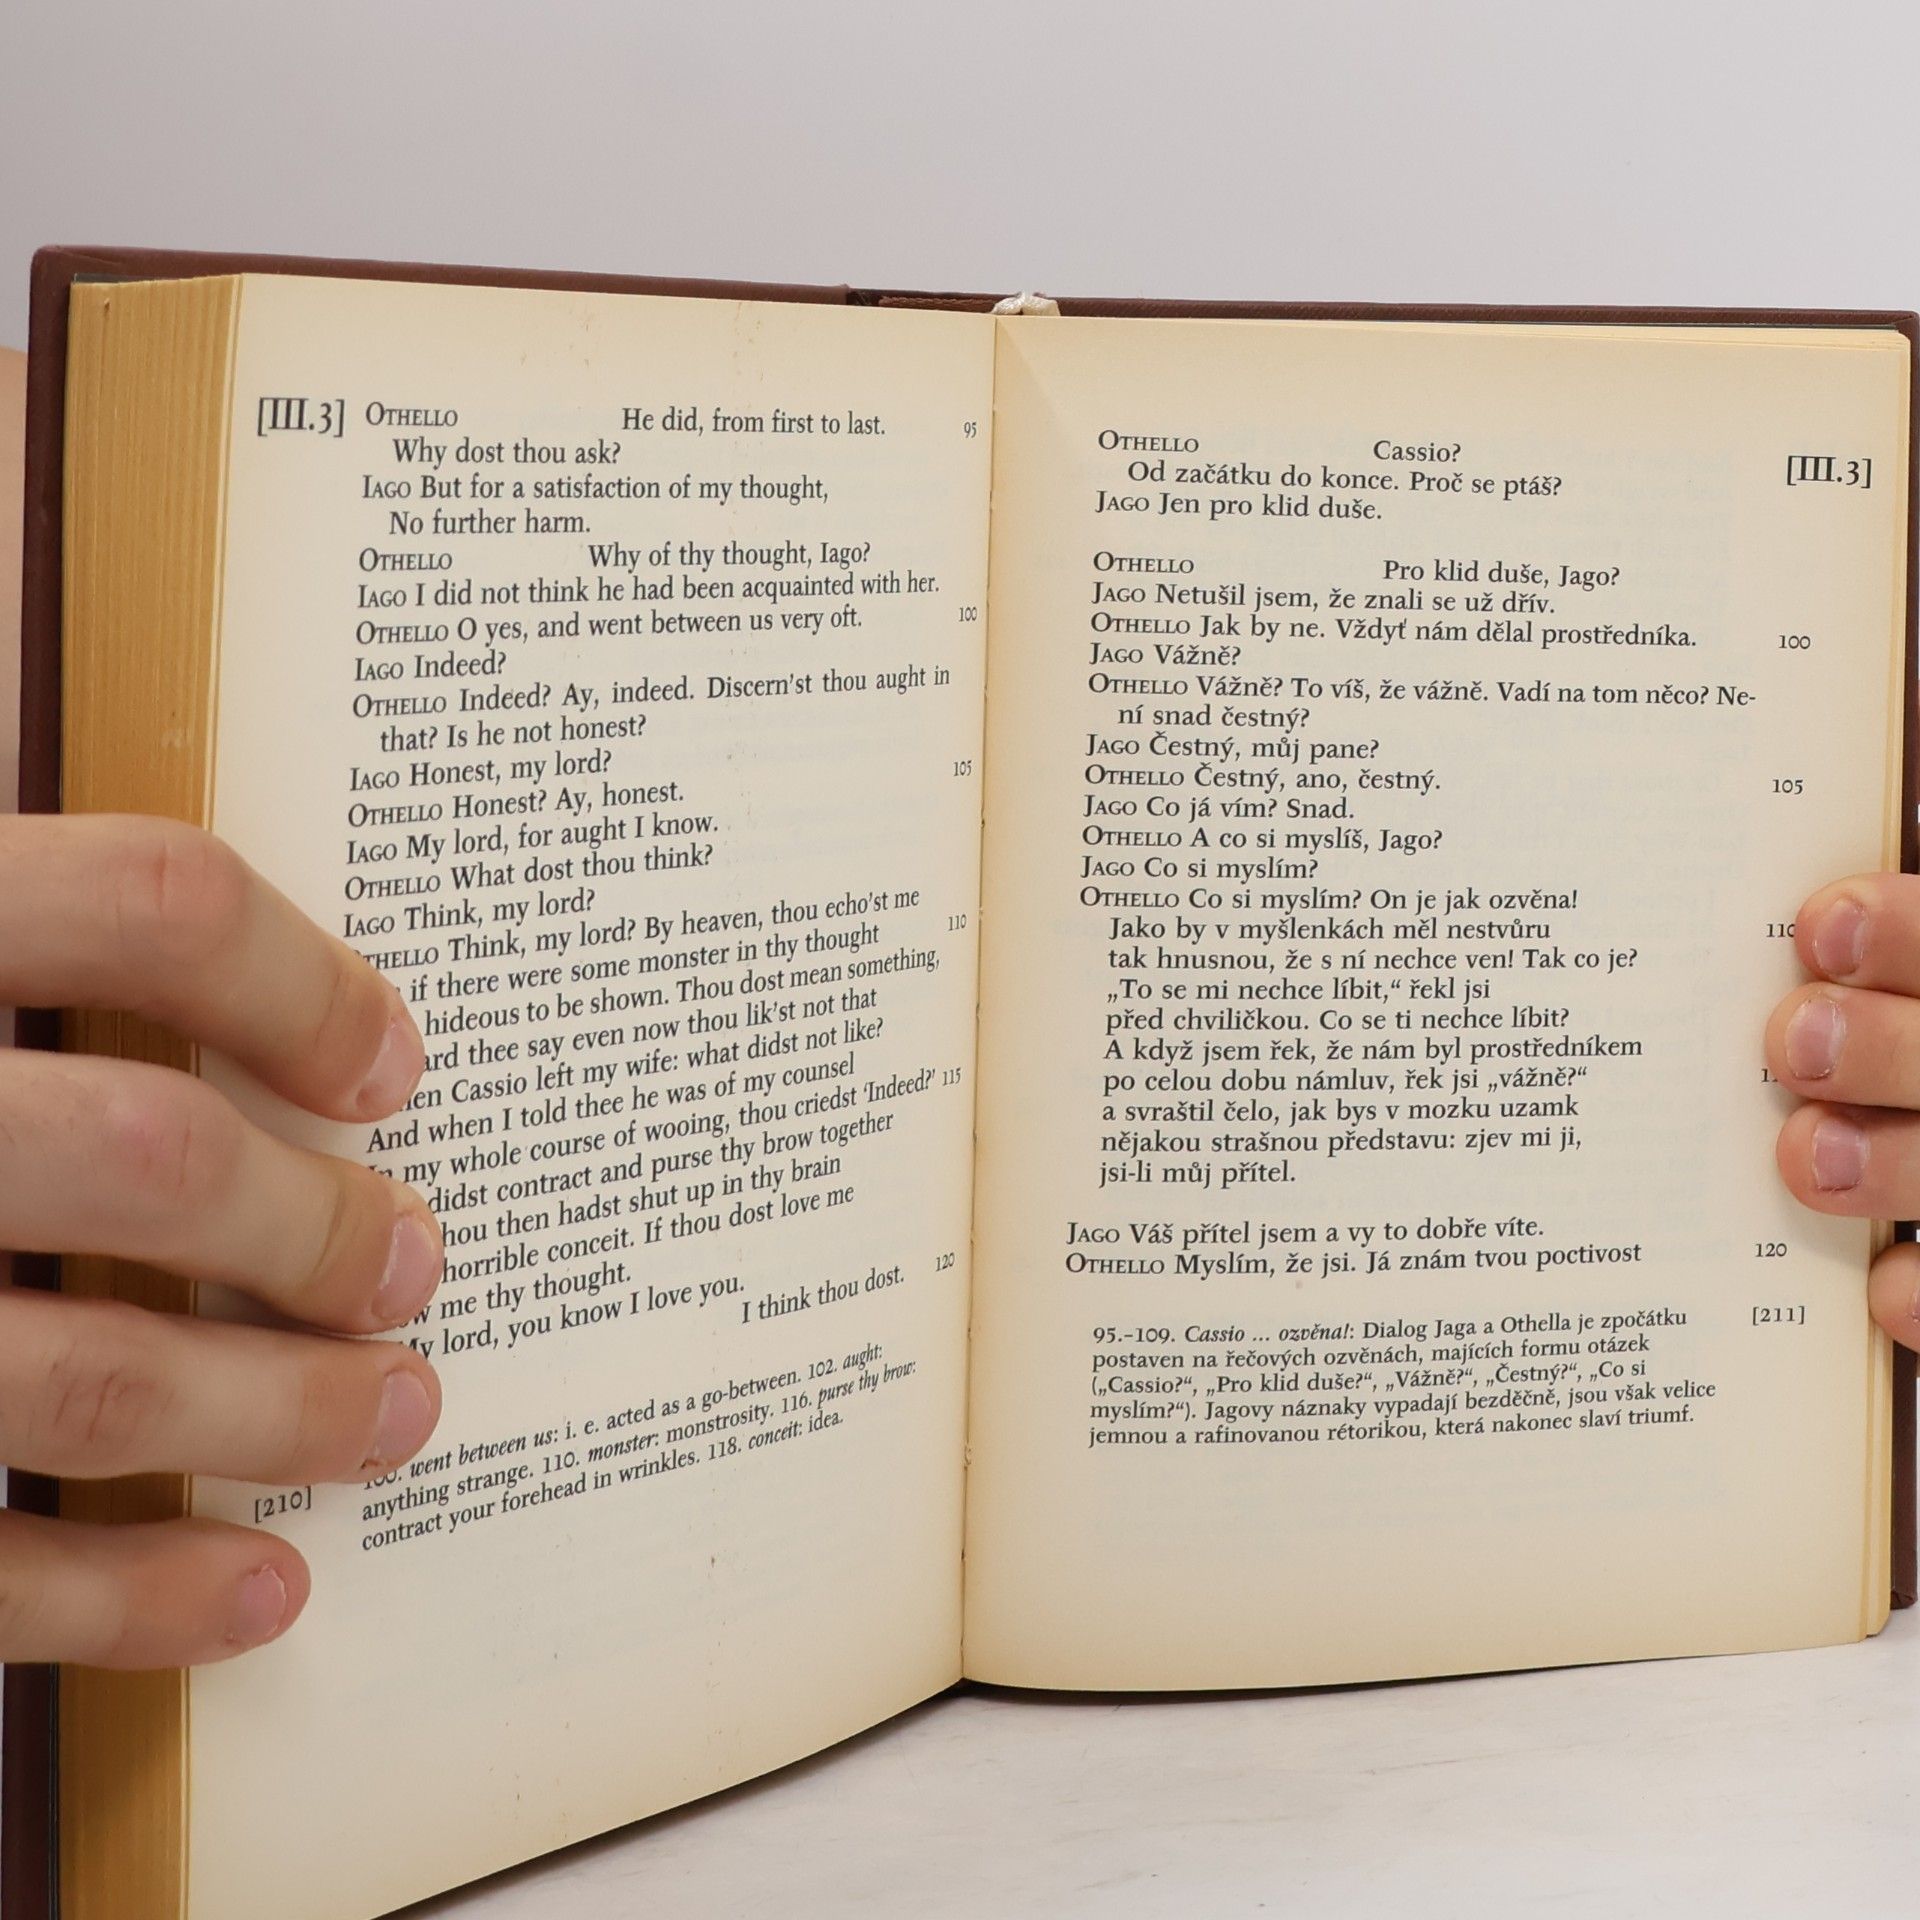 [III.3] OTHELLO He did, from first to last. 95
Why dost thou ask?
IAGO But for a satisfaction of my thought,
No further harm.
OTHELLO Why of thy thought, Iago?
IAGO I did not think he had been acquainted with her.
OTHELLO O yes, and went between us very oft. 100
IAGO Indeed?
OTHELLO Indeed? Ay, indeed. Discern'st thou aught in
that? Is he not honest?
IAGO Honest, my lord? 105
OTHELLO Honest? Ay, honest.
IAGO My lord, for aught I know.
OTHELLO What dost thou think?
IAGO Think, my lord?
OTHELLO Think, my lord? By heaven, thou echo'st me
if there were some monster in thy thought 110
hideous to be shown. Thou dost mean something,
thee say even now thou lik'st not that
Cassio left my wife: what didst not like?
And when I told thee he was of my counsel
my whole course of wooing, thou criedst 'Indeed?' 115
didst contract and purse thy brow together
then hadst shut up in thy brain
horrible conceit. If thou dost love me
me thy thought.
My lord, you know I love you.
I think thou dost. 120
went between us: i. e. acted as a go-between. 102. aught:
anything strange. 110. monster: monstrosity. 116. purse thy brow:
contract your forehead in wrinkles. 118. conceit: idea.
[210]
OTHELLO Cassio? [III.3]
Od začátku do konce. Proč se ptáš?
JAGO Jen pro klid duše.
OTHELLO Pro klid duše, Jago?
JAGO Netušil jsem, že znali se už dřív.
OTHELLO Jak by ne. Vždyť nám dělal prostředníka. 100
JAGO Vážně?
OTHELLO Vážně? To víš, že vážně. Vadí na tom něco? Ne-
ní snad čestný?
JAGO Čestný, můj pane?
OTHELLO Čestný, ano, čestný. 105
JAGO Co já vím? Snad.
OTHELLO A co si myslíš, Jago?
JAGO Co si myslím?
OTHELLO Co si myslím? On je jak ozvěna!
Jako by v myšlenkách měl nestvůru 110
tak hnusnou, že s ní nechce ven! Tak co je?
„To se mi nechce líbit,“ řekl jsi
před chviličkou. Co se ti nechce líbit?
A když jsem řek, že nám byl prostředníkem
po celou dobu námluv, řek jsi „vážně?“
a svraštil čelo, jak bys v mozku uzamk
nějakou strašnou představu: zjev mi ji,
jsi-li můj přítel.
JAGO Váš přítel jsem a vy to dobře víte.
OTHELLO Myslím, že jsi. Já znám tvou poctivost 120
95.–109. Cassio ... ozvěna!: Dialog Jaga a Othella je zpočátku [211]
postaven na řečových ozvěnách, majících formu otázek
(„Cassio?“, „Pro klid duše?“, „Vážně?“, „Čestný?“, „Co si
myslím?“). Jagovy náznaky vypadají bezděčně, jsou však velice
jemnou a rafinovanou rétorikou, která nakonec slaví triumf.